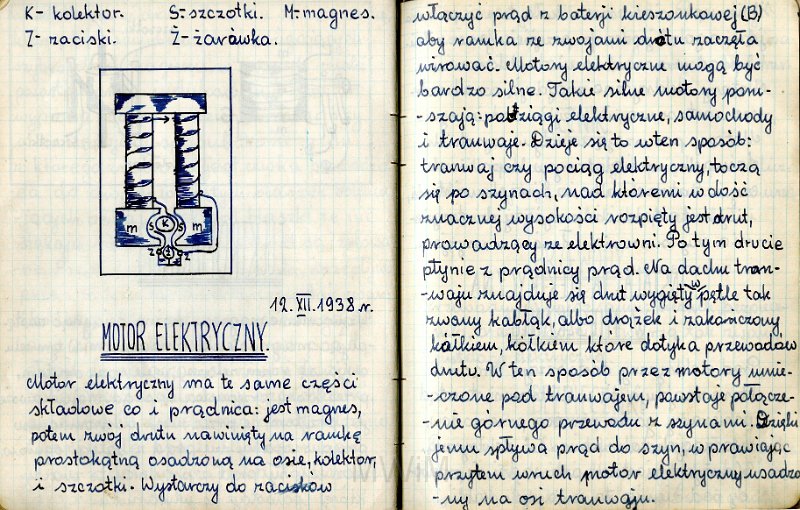 K- kolektor. S.-szczotki. M-magnes.
Z- zaciski. Ż-żarówka.
m S K S m
Z Ż Z
12.XII.1938 r.
MOTOR ELEKTRYCZNY.
Motor elektryczny ma te same części
składowe co i prądnica: jest magnes,
potem zwój drutu nawinięty na ramkę
prostokątną osadzoną na osie, kolektor,
i szczotki. Wystarczy do zacisków
włączyć prąd z baterji kieszonkowej (B)
aby ramka ze zwojami drutu zaczęła
wirować. Motory elektryczne mogą być
bardzo silne. Takie silne motory poru-
-szają: pociągi elektryczne, samochody
i tramwaje. Dzieje się to w ten sposób:
tramwaj czy pociąg elektryczny, toczą
się po szynach, nad któremi w dość
znacznej wysokości rozpięty jest drut,
prowadzący ze elektrowni. Po tym drucie
płynie z prądnicy prąd. Na dachu tram-
-waju znajduje się drut wygięty w pętle tak
zwany kabłąk, albo drążek i zakończony
kółkiem, które dotyka przewodów
drutu. W ten sposób przez motory umie-
-czone pod tramwajem, powstaje połącze-
-nie górnego przewodu z szynami. Dzięki
jemu spływa prąd do szyn, w prawiając
przytem wruch motor elektryczny usadzo
-ny na osi tramwaju.